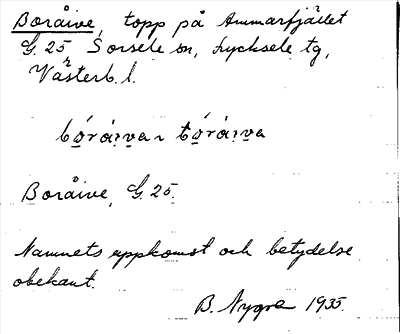 Boråive, topp på Ammarfjället
G. 25 Sorsele sn, Lycksele tg,
Västerb. l.
Boråive, G. 25.
Namnets uppkomst och betydelse
obekant.
B. Nygre 1935.